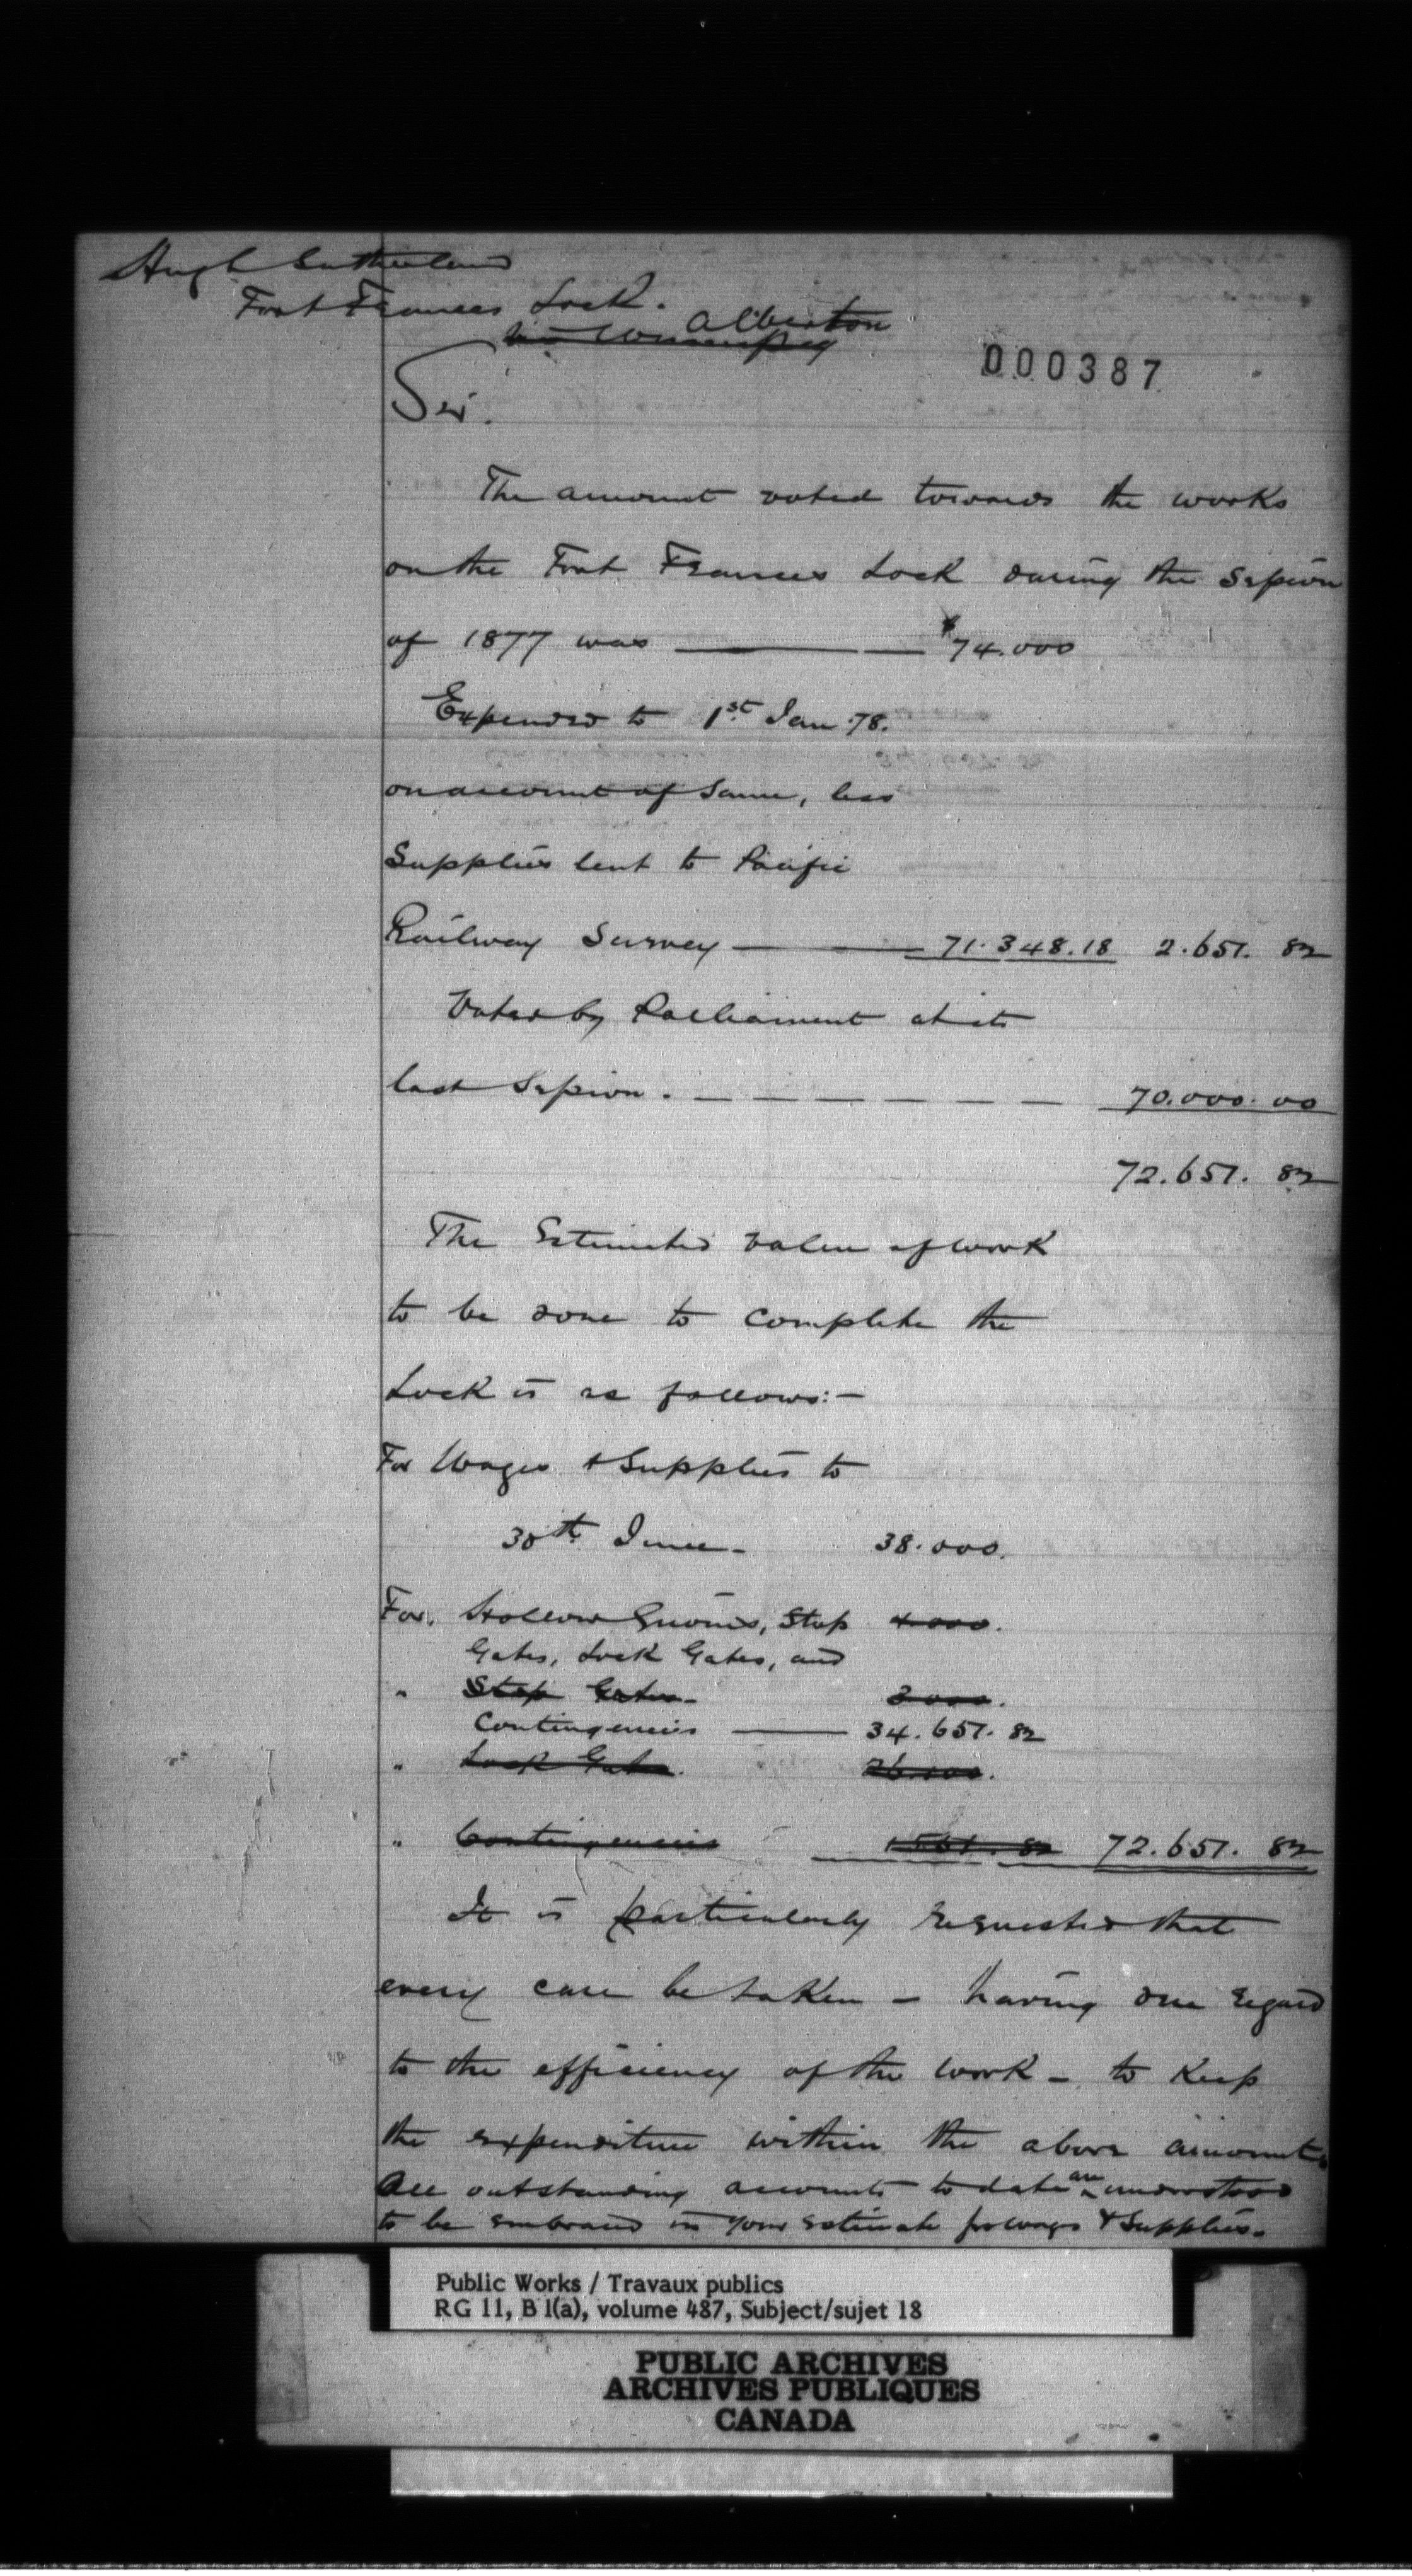 Hugh Sutherland
Fort Frances Lock.
Alberton
via Winnipeg
000387
Sir.
The amount voted towards the works
on the Fort Frances Lock during the Session
of 1877 was $74.000
Expended to 1st Jan 78.
on account of same, less
Supplies lent to Pacific
Railway Survey 71.348.18 2.651. 82
Voted by Parliament at its
last Session. 70.000.00
72.651. 82
The Estimated value of work
to be done to complete the
Lock is as follows:-
For Wages & Supplies to
30th June - 38.000.
For. Hollow Quoins, Stop 4.000.
Gates, Lock Gates, and
" Stop Gates - 3.000.
Contingencies 34.651. 82
" Lock Gates. 26.000.
" Contingencies 1651. 82 72.651. 82
It is particularly requested that
every care be taken - having due regard
to the efficiency of the work - to Keep
the expenditure within the above amount.
All outstanding accounts to date are understood
to be embraced in your estimate for wages & Supplies.
Public Works / Travaux publics
RG 11, B 1(a), volume 487, Subject/sujet 18
PUBLIC ARCHIVES
ARCHIVES PUBLIQUES
CANADA